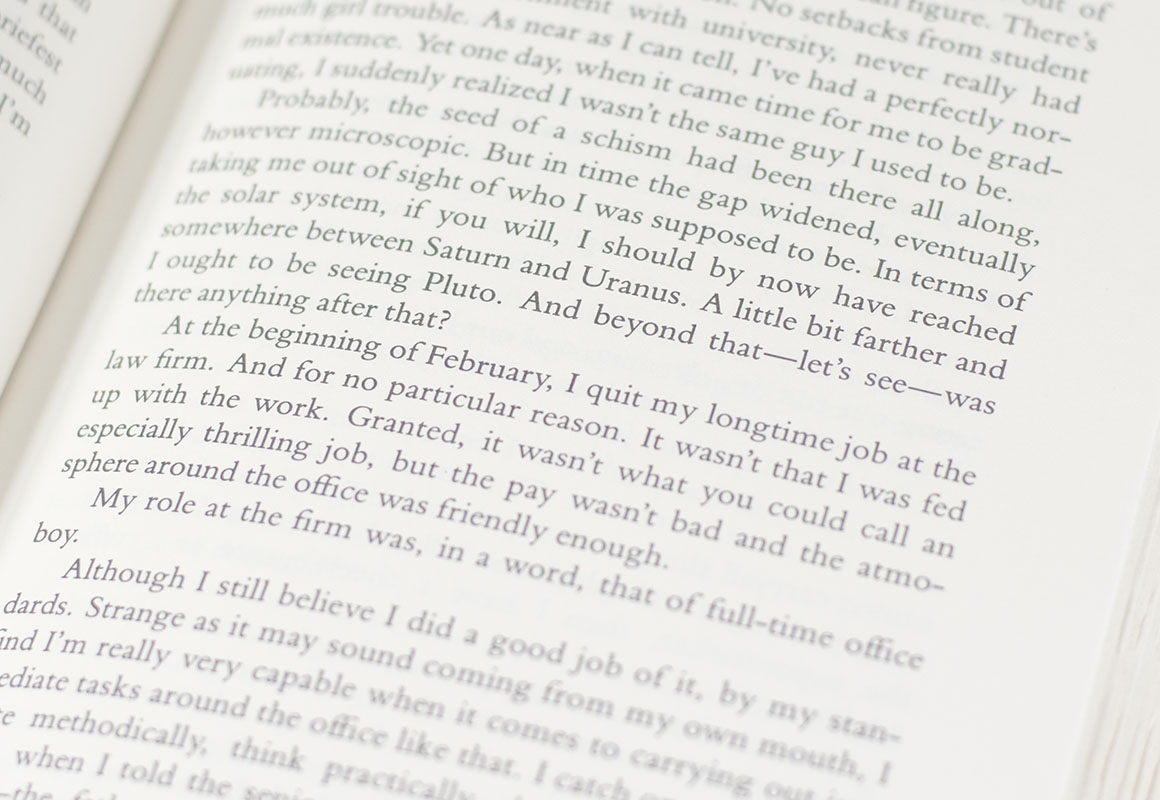 that
riefest
much
I'm
out of
figure. There's
No setbacks from student
with university, never really had
much girl trouble. As near as I can tell, I've had a perfectly nor-
mal existence. Yet one day, when it came time for me to be grad-
uating, I suddenly realized I wasn't the same guy I used to be.
Probably, the seed of a schism had been there all along,
however microscopic. But in time the gap widened, eventually
taking me out of sight of who I was supposed to be. In terms of
the solar system, if you will, I should by now have reached
somewhere between Saturn and Uranus. A little bit farther and
I ought to be seeing Pluto. And beyond that—let's see—was
there anything after that?
At the beginning of February, I quit my longtime job at the
law firm. And for no particular reason. It wasn't that I was fed
up with the work. Granted, it wasn't what you could call an
especially thrilling job, but the pay wasn't bad and the atmo-
sphere around the office was friendly enough.
My role at the firm was, in a word, that of full-time office
boy.
Although I still believe I did a good job of it, by my stan-
dards. Strange as it may sound coming from my own mouth, I
find I'm really very capable when it comes to carrying out
ediate tasks around the office like that. I catch
methodically, think practically,
when I told the